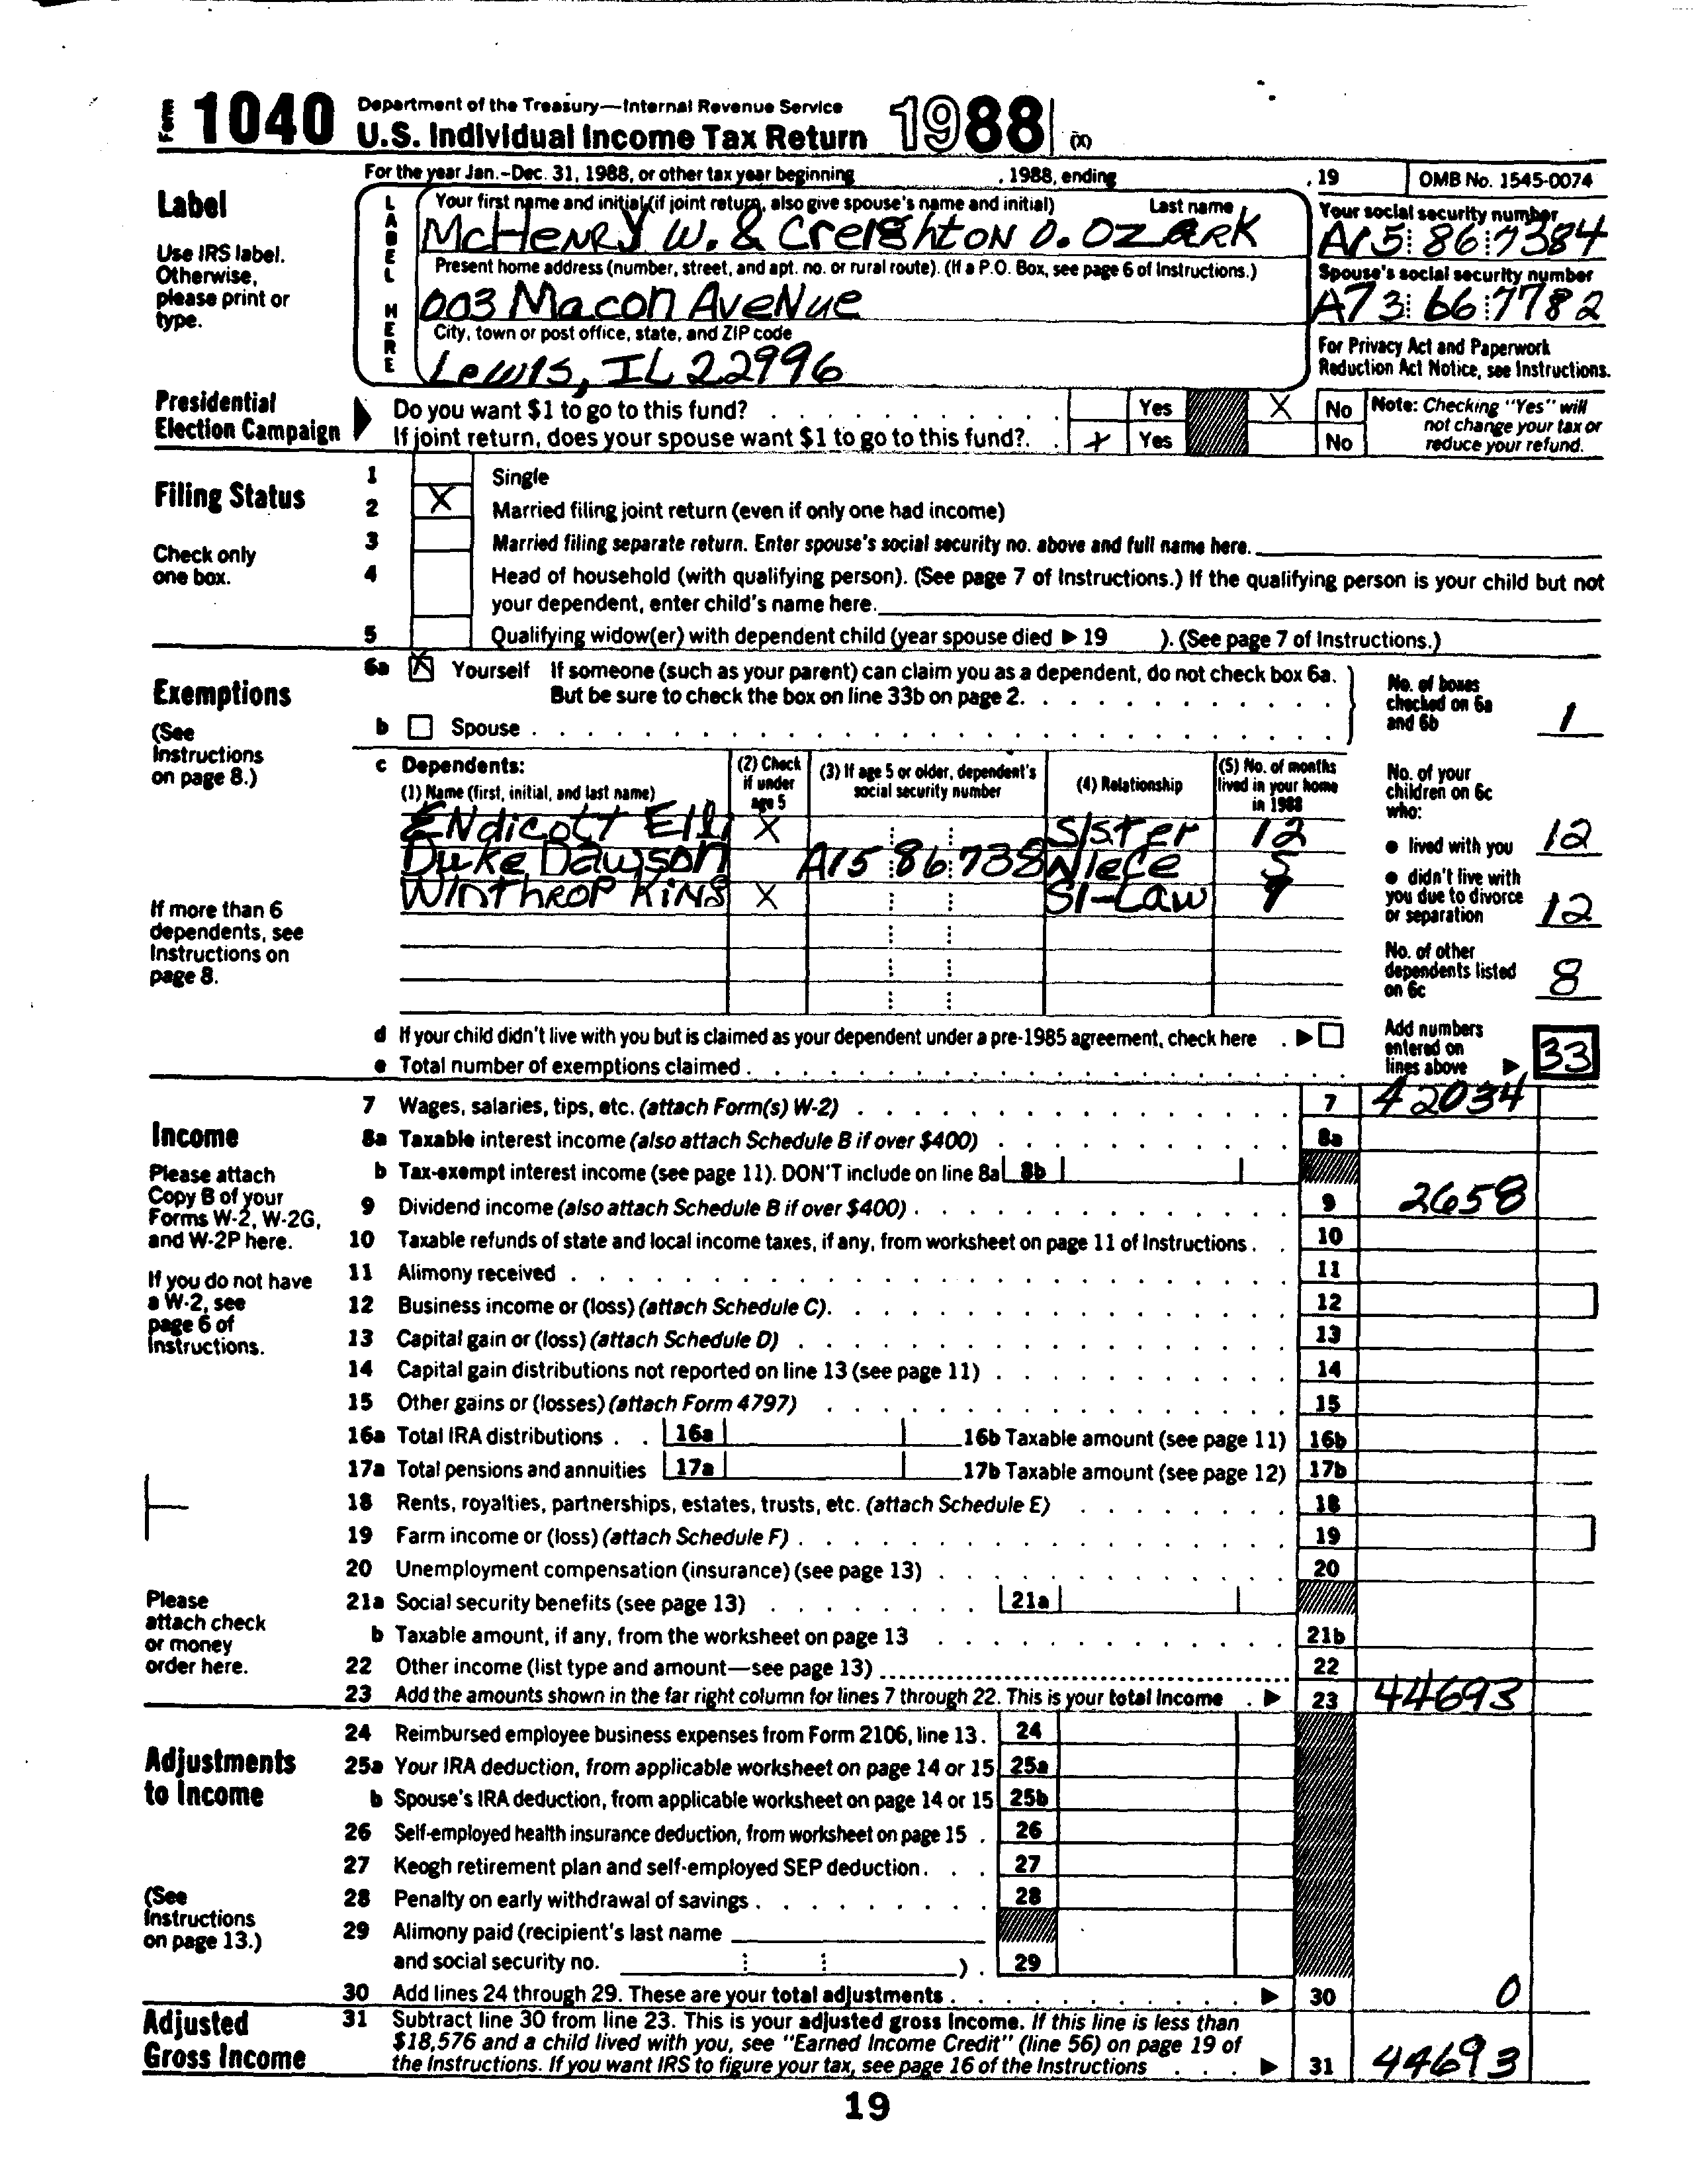 Form 1040 Department of the Treasury—Internal Revenue Service
U.S. Individual Income Tax Return 1988 (X)
For the year Jan.-Dec. 31, 1988, or other tax year beginning , 1988, ending , 19 OMB No. 1545-0074
Label
Use IRS label.
Otherwise,
please print or
type.
LABEL HERE
Your first name and initial (if joint return, also give spouse's name and initial) Last name
McHENRY W. & CreIghtON O. OZARK
Your social security number
A15 86 7384
Present home address (number, street, and apt. no. or rural route). (If a P.O. Box, see page 6 of Instructions.)
003 Macon AveNue
Spouse's social security number
A73 66 7782
City, town or post office, state, and ZIP code
LewIs, IL 22996
For Privacy Act and Paperwork
Reduction Act Notice, see Instructions.
Presidential
Election Campaign
Do you want $1 to go to this fund? Yes X No
If joint return, does your spouse want $1 to go to this fund? X Yes No
Note: Checking "Yes" will
not change your tax or
reduce your refund.
Filing Status
Check only
one box.
1 Single
2 X Married filing joint return (even if only one had income)
3 Married filing separate return. Enter spouse's social security no. above and full name here.
4 Head of household (with qualifying person). (See page 7 of Instructions.) If the qualifying person is your child but not
your dependent, enter child's name here.
5 Qualifying widow(er) with dependent child (year spouse died ▶ 19 ). (See page 7 of Instructions.)
Exemptions
(See
Instructions
on page 8.)
6a X Yourself If someone (such as your parent) can claim you as a dependent, do not check box 6a.
But be sure to check the box on line 33b on page 2.
b Spouse
No. of boxes
checked on 6a
and 6b 1
c Dependents:
(1) Name (first, initial, and last name)
(2) Check
if under
age 5
(3) If age 5 or older, dependent's
social security number
(4) Relationship
(5) No. of months
lived in your home
in 1988
ENdicott Elli X SISter 12
Duke Dawson A15 86 738 Niece 5
WINTHROP KING X SI-Law 9
If more than 6
dependents, see
Instructions on
page 8.
No. of your
children on 6c
who:
● lived with you 12
● didn't live with
you due to divorce
or separation 12
No. of other
dependents listed
on 6c 8
d If your child didn't live with you but is claimed as your dependent under a pre-1985 agreement, check here ▶
e Total number of exemptions claimed
Add numbers
entered on
lines above ▶ 33
Income
Please attach
Copy B of your
Forms W-2, W-2G,
and W-2P here.
If you do not have
a W-2, see
page 6 of
Instructions.
Please
attach check
or money
order here.
7 Wages, salaries, tips, etc. (attach Form(s) W-2) 7 42034
8a Taxable interest income (also attach Schedule B if over $400) 8a
b Tax-exempt interest income (see page 11). DON'T include on line 8a 8b
9 Dividend income (also attach Schedule B if over $400) 9 2658
10 Taxable refunds of state and local income taxes, if any, from worksheet on page 11 of Instructions 10
11 Alimony received 11
12 Business income or (loss) (attach Schedule C) 12
13 Capital gain or (loss) (attach Schedule D) 13
14 Capital gain distributions not reported on line 13 (see page 11) 14
15 Other gains or (losses) (attach Form 4797) 15
16a Total IRA distributions 16a 16b Taxable amount (see page 11) 16b
17a Total pensions and annuities 17a 17b Taxable amount (see page 12) 17b
18 Rents, royalties, partnerships, estates, trusts, etc. (attach Schedule E) 18
19 Farm income or (loss) (attach Schedule F) 19
20 Unemployment compensation (insurance) (see page 13) 20
21a Social security benefits (see page 13) 21a
b Taxable amount, if any, from the worksheet on page 13 21b
22 Other income (list type and amount—see page 13) 22
23 Add the amounts shown in the far right column for lines 7 through 22. This is your total income ▶ 23 44693
Adjustments
to Income
(See
Instructions
on page 13.)
24 Reimbursed employee business expenses from Form 2106, line 13. 24
25a Your IRA deduction, from applicable worksheet on page 14 or 15 25a
b Spouse's IRA deduction, from applicable worksheet on page 14 or 15 25b
26 Self-employed health insurance deduction, from worksheet on page 15 26
27 Keogh retirement plan and self-employed SEP deduction 27
28 Penalty on early withdrawal of savings 28
29 Alimony paid (recipient's last name
and social security no. ) 29
30 Add lines 24 through 29. These are your total adjustments ▶ 30 0
Adjusted
Gross Income
31 Subtract line 30 from line 23. This is your adjusted gross income. If this line is less than
$18,576 and a child lived with you, see "Earned Income Credit" (line 56) on page 19 of
the Instructions. If you want IRS to figure your tax, see page 16 of the Instructions ▶ 31 44693
19